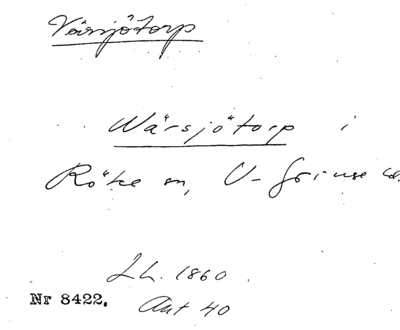 Värsjötorp
Wärsjötorp i
Röke sn, V-Göinge hd.
Lh. 1860
Nr 8422. Ant 40